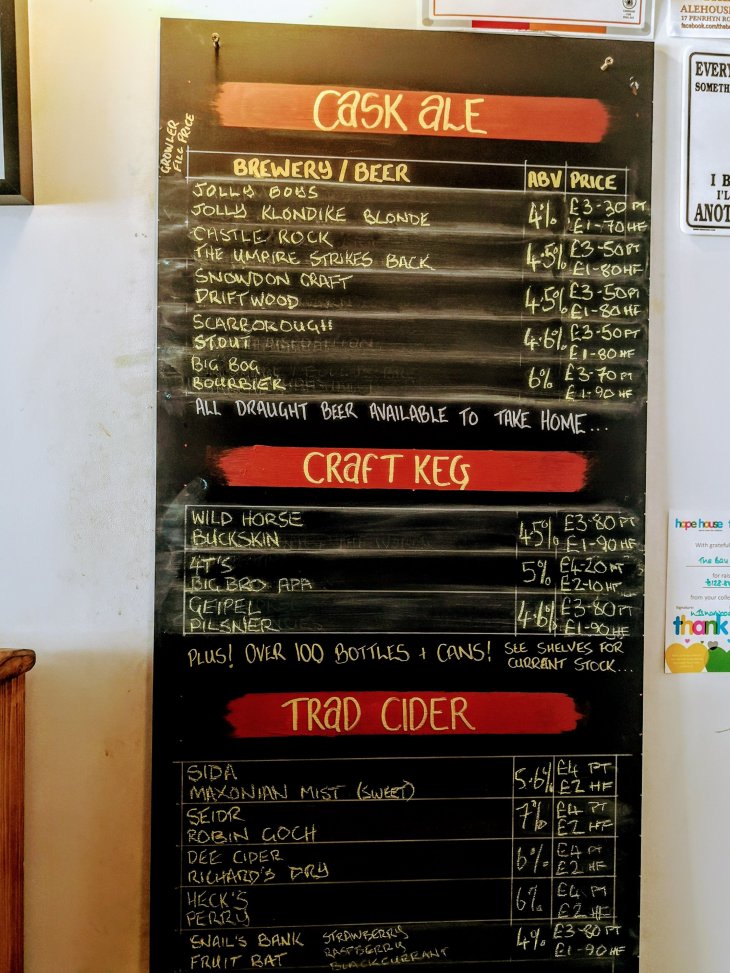 ALEHOUSE
17 PENRHYN RO
facebook.com/theba
EVERY
SOMETH
I B
I'L
ANOT
GROWLER
FILL PRICE
CASK ALE
BREWERY / BEER ABV PRICE
JOLLY BOYS
JOLLY KLONDIKE BLONDE 4% £3-30 PT £1-70 HF
CASTLE ROCK
THE UMPIRE STRIKES BACK 4.5% £3-50 PT £1-80 HF
SNOWDON CRAFT
DRIFTWOOD 4.5% £3-50 PT £1-80 HF
SCARBOROUGH
STOUT 4.6% £3-50 PT £1-80 HF
BIG BOG
BOURBIER 6% £3-70 PT £1-90 HF
ALL DRAUGHT BEER AVAILABLE TO TAKE HOME...
CRAFT KEG
WILD HORSE
BUCKSKIN 4.5% £3-80 PT £1-90 HF
4T'S
BIG BRO APA 5% £4-20 PT £2-10 HF
GEIPEL
PILSNER 4.6% £3-80 PT £1-90 HF
PLUS! OVER 100 BOTTLES + CANS! SEE SHELVES FOR
CURRENT STOCK...
TRAD CIDER
SIDA
MAXONIAN MIST (SWEET) 5.6% £4 PT £2 HF
SEIDR
ROBIN GOCH 7% £4 PT £2 HF
DEE CIDER
RICHARD'S DRY 6% £4 PT £2 HF
HECK'S
PERRY 6% £4 PT £2 HF
SNAIL'S BANK STRAWBERRY
FRUIT BAT RASPBERRY
BLACKCURRANT 4% £3-80 PT £1-90 HF
hope house
With grateful
The Bau
for rais
from your colle
Signature:
thank